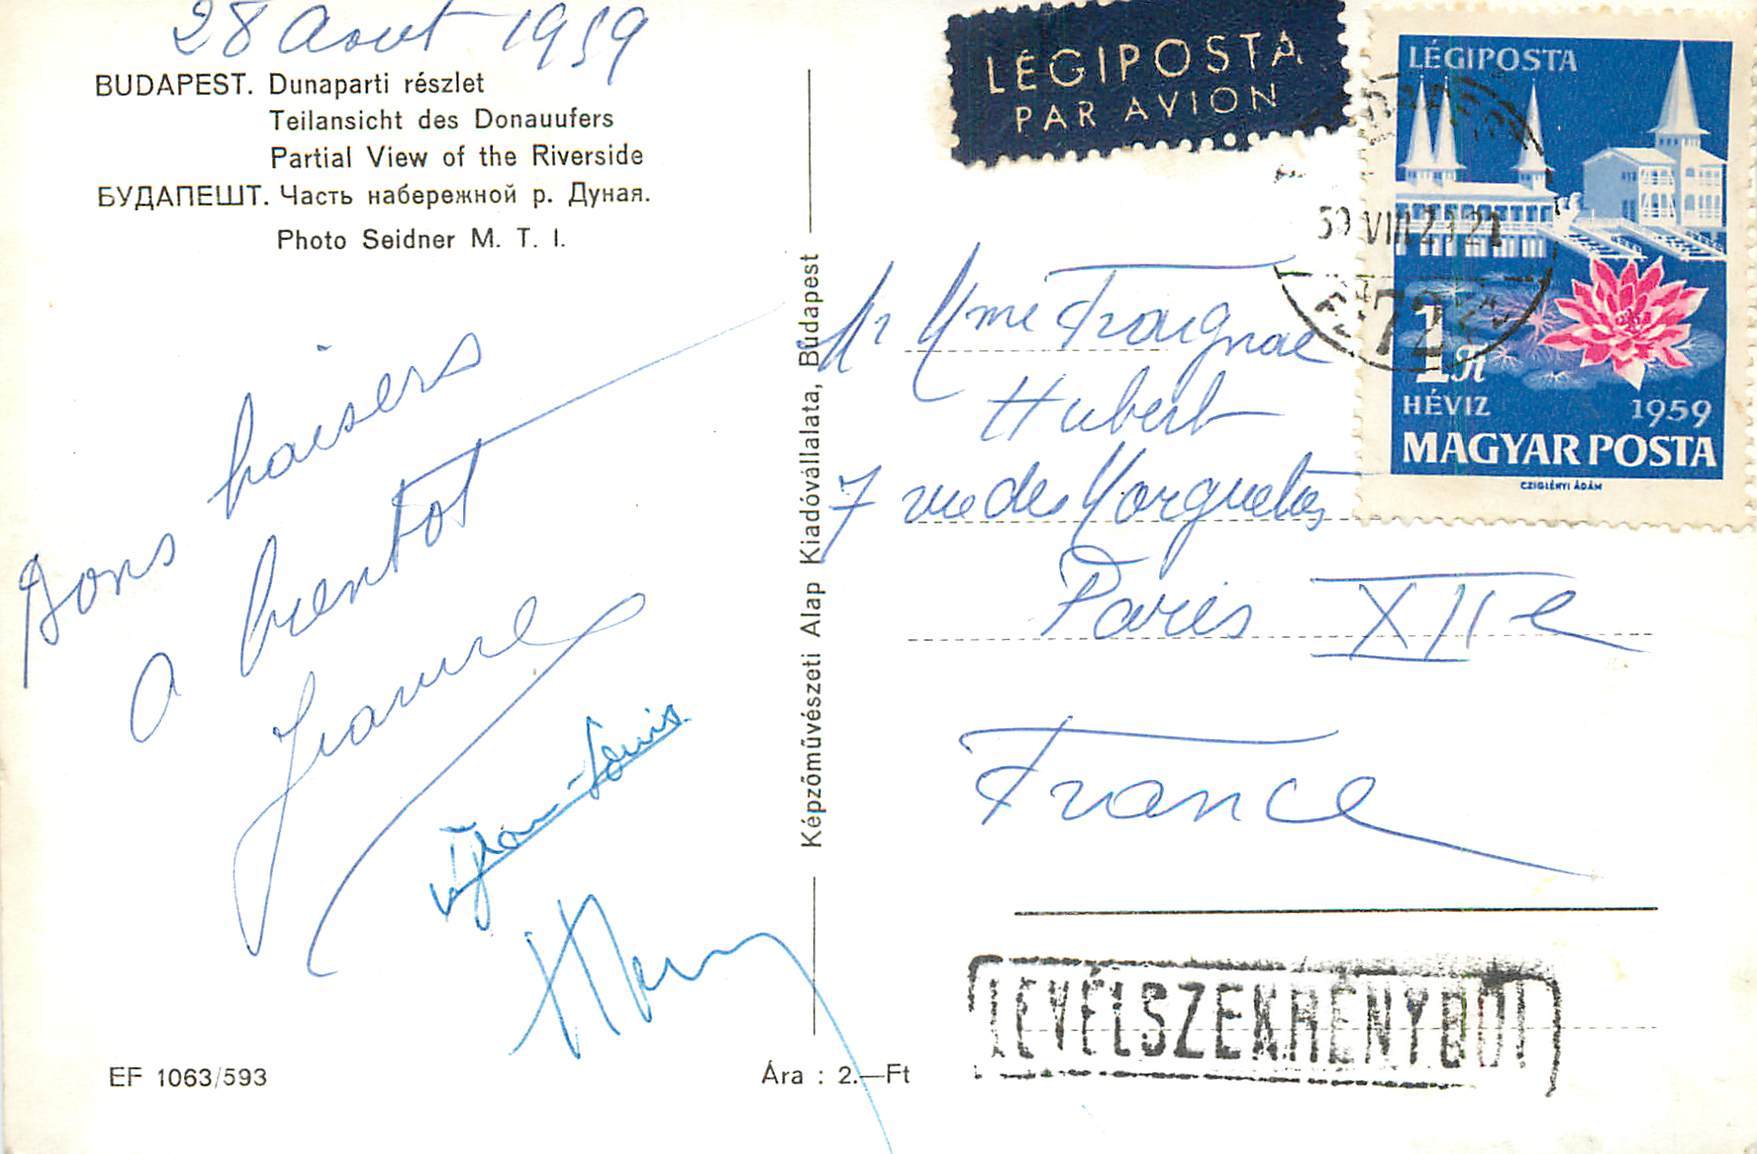 28 Aout 1959
BUDAPEST. Dunaparti részlet
Teilansicht des Donauufers
Partial View of the Riverside
БУДАПЕШТ. Часть набережной р. Дуная.
Photo Seidner M. T. I.
Bons baisers
A bientot
Jeanne
Jean-Louis
EF 1063/593
Képzőművészeti Alap Kiadóvállalata, Budapest
Ára : 2.—Ft
LÉGIPOSTA
PAR AVION
LÉGIPOSTA
1 Ft
HÉVIZ 1959
MAGYAR POSTA
CZIGLÉNYI ÁDÁM
59 VIII 29 21
72
Mr Mme Fraignac
Hubert
7 rue des Marguettes
Paris XIIe
France
LEVÉLSZEKRÉNYBŐL